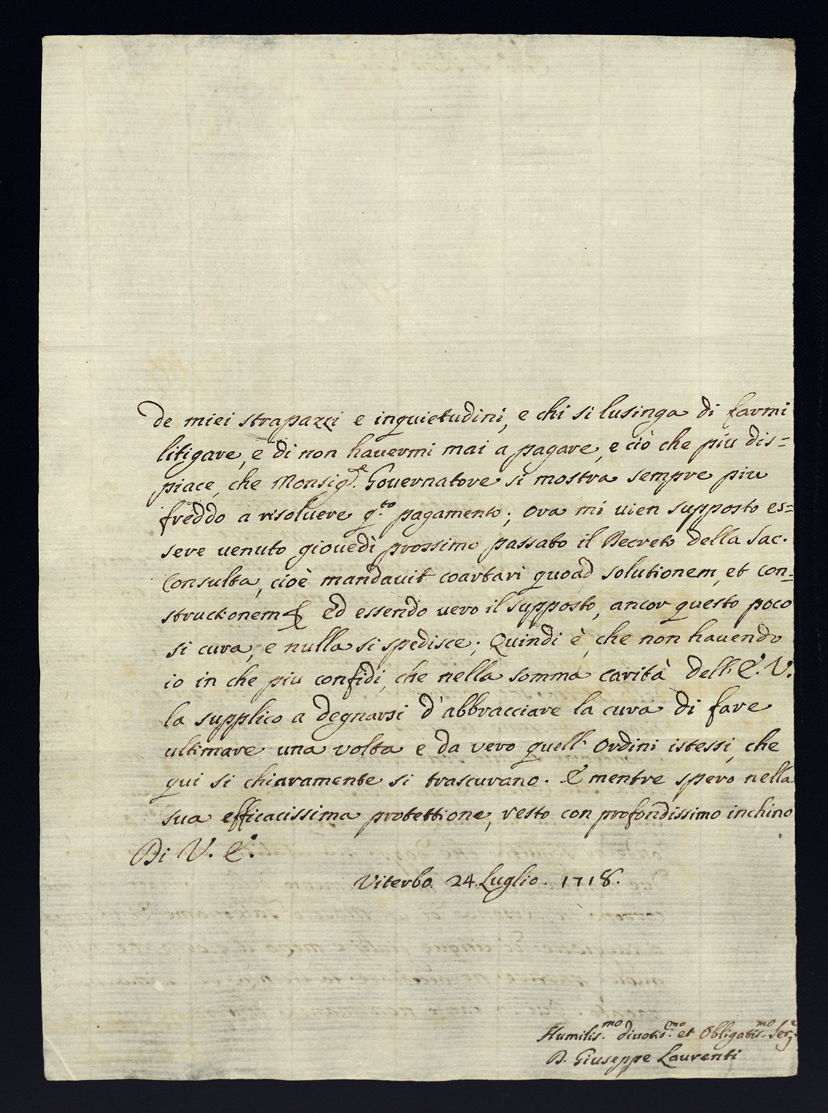 De miei strapazzi e inquietudini, e chi si lusinga di farmi
litigare, e di non havermi mai a pagare, e ciò che piu dis=
piace, che Monsig.r Governatore si mostra sempre piu
freddo a risoluere q.to pagamento; ora mi vien supposto es=
sere venuto giovedì prossimo passato il Decreto della Sac.
Consulta, cioè mandavit coartari quoad solutionem, et con=
structionem Ed essendo vero il supposto, ancor questo poco
si cura, e nulla si spedisce; Quindi è, che non havendo
io in che piu confidi, che nella somma carità dell' E. V.
la supplico a degnarsi d'abbracciare la cura di fare
ultimare una volta e da vero quell' Ordini istessi, che
qui si chiaramente si trascurano. E mentre spero nella
sua efficacissima protettione, resto con profondissimo inchino
Di V. E.
Viterbo 24 Luglio. 1718.
Humilis.mo divotis.mo et Obligatis.mo Ser.e
D. Giuseppe Laurenti